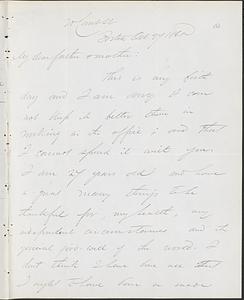 My dear father & mother:
This is my birth
day and I am sorry I can
not keep it better than in
working at the office; and that
I cannot spend it with you.
I am 24 years old and have
a great many things to be
thankful for, my health, my
independent circumstances and the
general good-will of the world. I
don't think I have done all that
I ought to have done or made